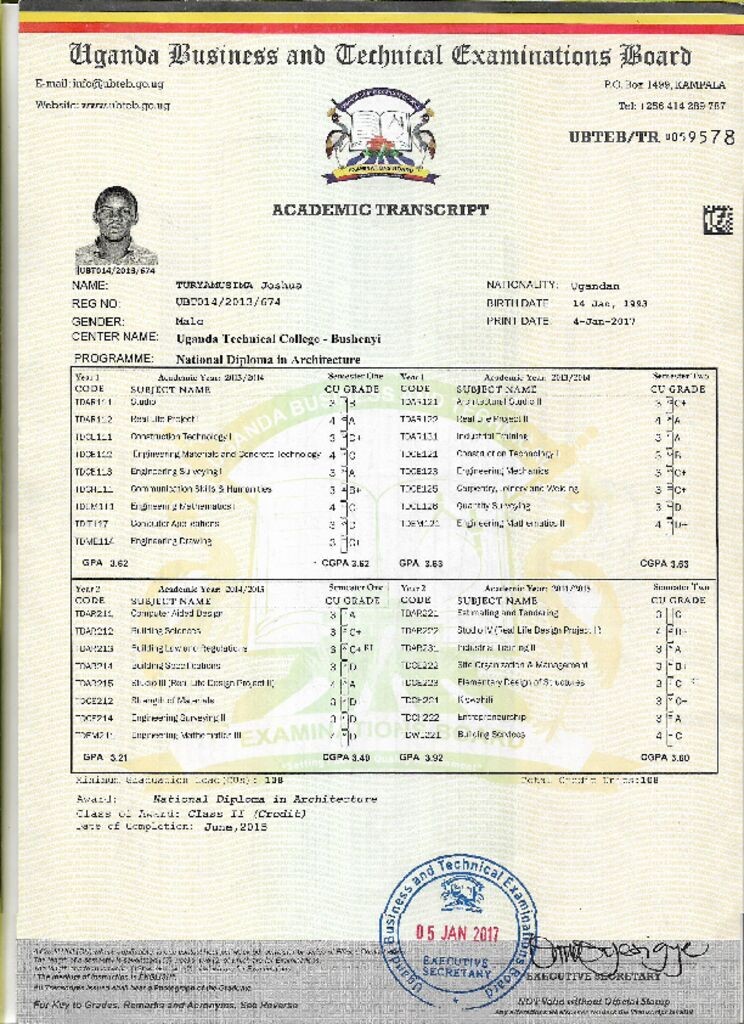 Uganda Business and Technical Examinations Board
E-mail: info@ubteb.go.ug
P.O. Box 1499, KAMPALA
Website: www.ubteb.go.ug
Tel: +256 414 289 787
UBTEB/TR 0059578
EXAMINATIONS BOARD
ACADEMIC TRANSCRIPT
UBT014/2013/674
NAME: TURYAMUSIMA Joshua
NATIONALITY: Ugandan
REG NO: UBT014/2013/674
BIRTH DATE 14 Jan, 1993
GENDER: Male
PRINT DATE 4-Jan-2017
CENTER NAME: Uganda Technical College - Bushenyi
PROGRAMME: National Diploma in Architecture
Year 1 Academic Year: 2013/2014 Semester One
CODE SUBJECT NAME CU GRADE
TDAR111 Studio 3 B
TDAR112 Real Life Project I 4 A
Construction Technology I 3
Engineering Materials and Concrete Technology 4 C
Engineering Surveying I 3 A
Communication Skills & Humanities 3 B+
Engineering Mathematics I 4 C
Computer Applications 3
TDME114 Engineering Drawing 3 C+
GPA 3.62 CGPA 3.62
Year 1 Academic Year: 2013/2014 Semester Two
CODE SUBJECT NAME CU GRADE
TDAR121 Architectural Studio II 3 C+
TDAR122 Real Life Project II 4 A
TDAR131 Industrial Training 3 A
TDCE121 Construction Technology 3 B
TDCE123 Engineering Mechanics 3 C+
TDCE125 Carpentry, Joinery and Welding 3 C+
TDCE126 Quantity Surveying 3 D
TDEM121 Engineering Mathematics II 4 D+
GPA 3.63 CGPA 3.63
Year 2 Academic Year: 2014/2015 Semester One
CODE SUBJECT NAME CU GRADE
TDAR211 Computer Aided Design 3 A
TDAR212 Building Sciences 3 C+
TDAR213 Building Law and Regulations 3 C+ RT
TDAR214 Building Specifications 3 D
TDAR215 Studio III (Real Life Design Project II) 4 A
TDCE212 Strength of Materials 3 D
TDCE214 Engineering Surveying II 3 D
TDEM211 Engineering Mathematics III 4 D
GPA 3.21 CGPA 3.49
Year 2 Academic Year: Semester Two
CODE SUBJECT NAME CU GRADE
TDAR221 Estimating and Tendering 3 C
TDAR222 Studio IV (Real Life Design Project 4 B+
TDAR231 Industrial Training II 3 A
TDCE222 Site Organization & Management 3 B+
TDCE223 Elementary Design of Structures 3 C
Kiswahili 3 C+
Entrepreneurship 3 A
Building Services 4 C
GPA 3.92 CGPA 3.60
Minimum Graduation Load(CUs): 108
Total Credit Units:108
Award: National Diploma in Architecture
Class of Award: Class II (Credit)
Date of Completion: June, 2015
Uganda Business and Technical Examinations Board
05 JAN 2017
EXECUTIVE SECRETARY
EXECUTIVE SECRETARY
The medium of instruction is ENGLISH.
All Transcripts issued shall bear a Photograph of the Graduate
For Key to Grades, Remarks and Acronyms, See Reverse
NOT Valid without Official Stamp